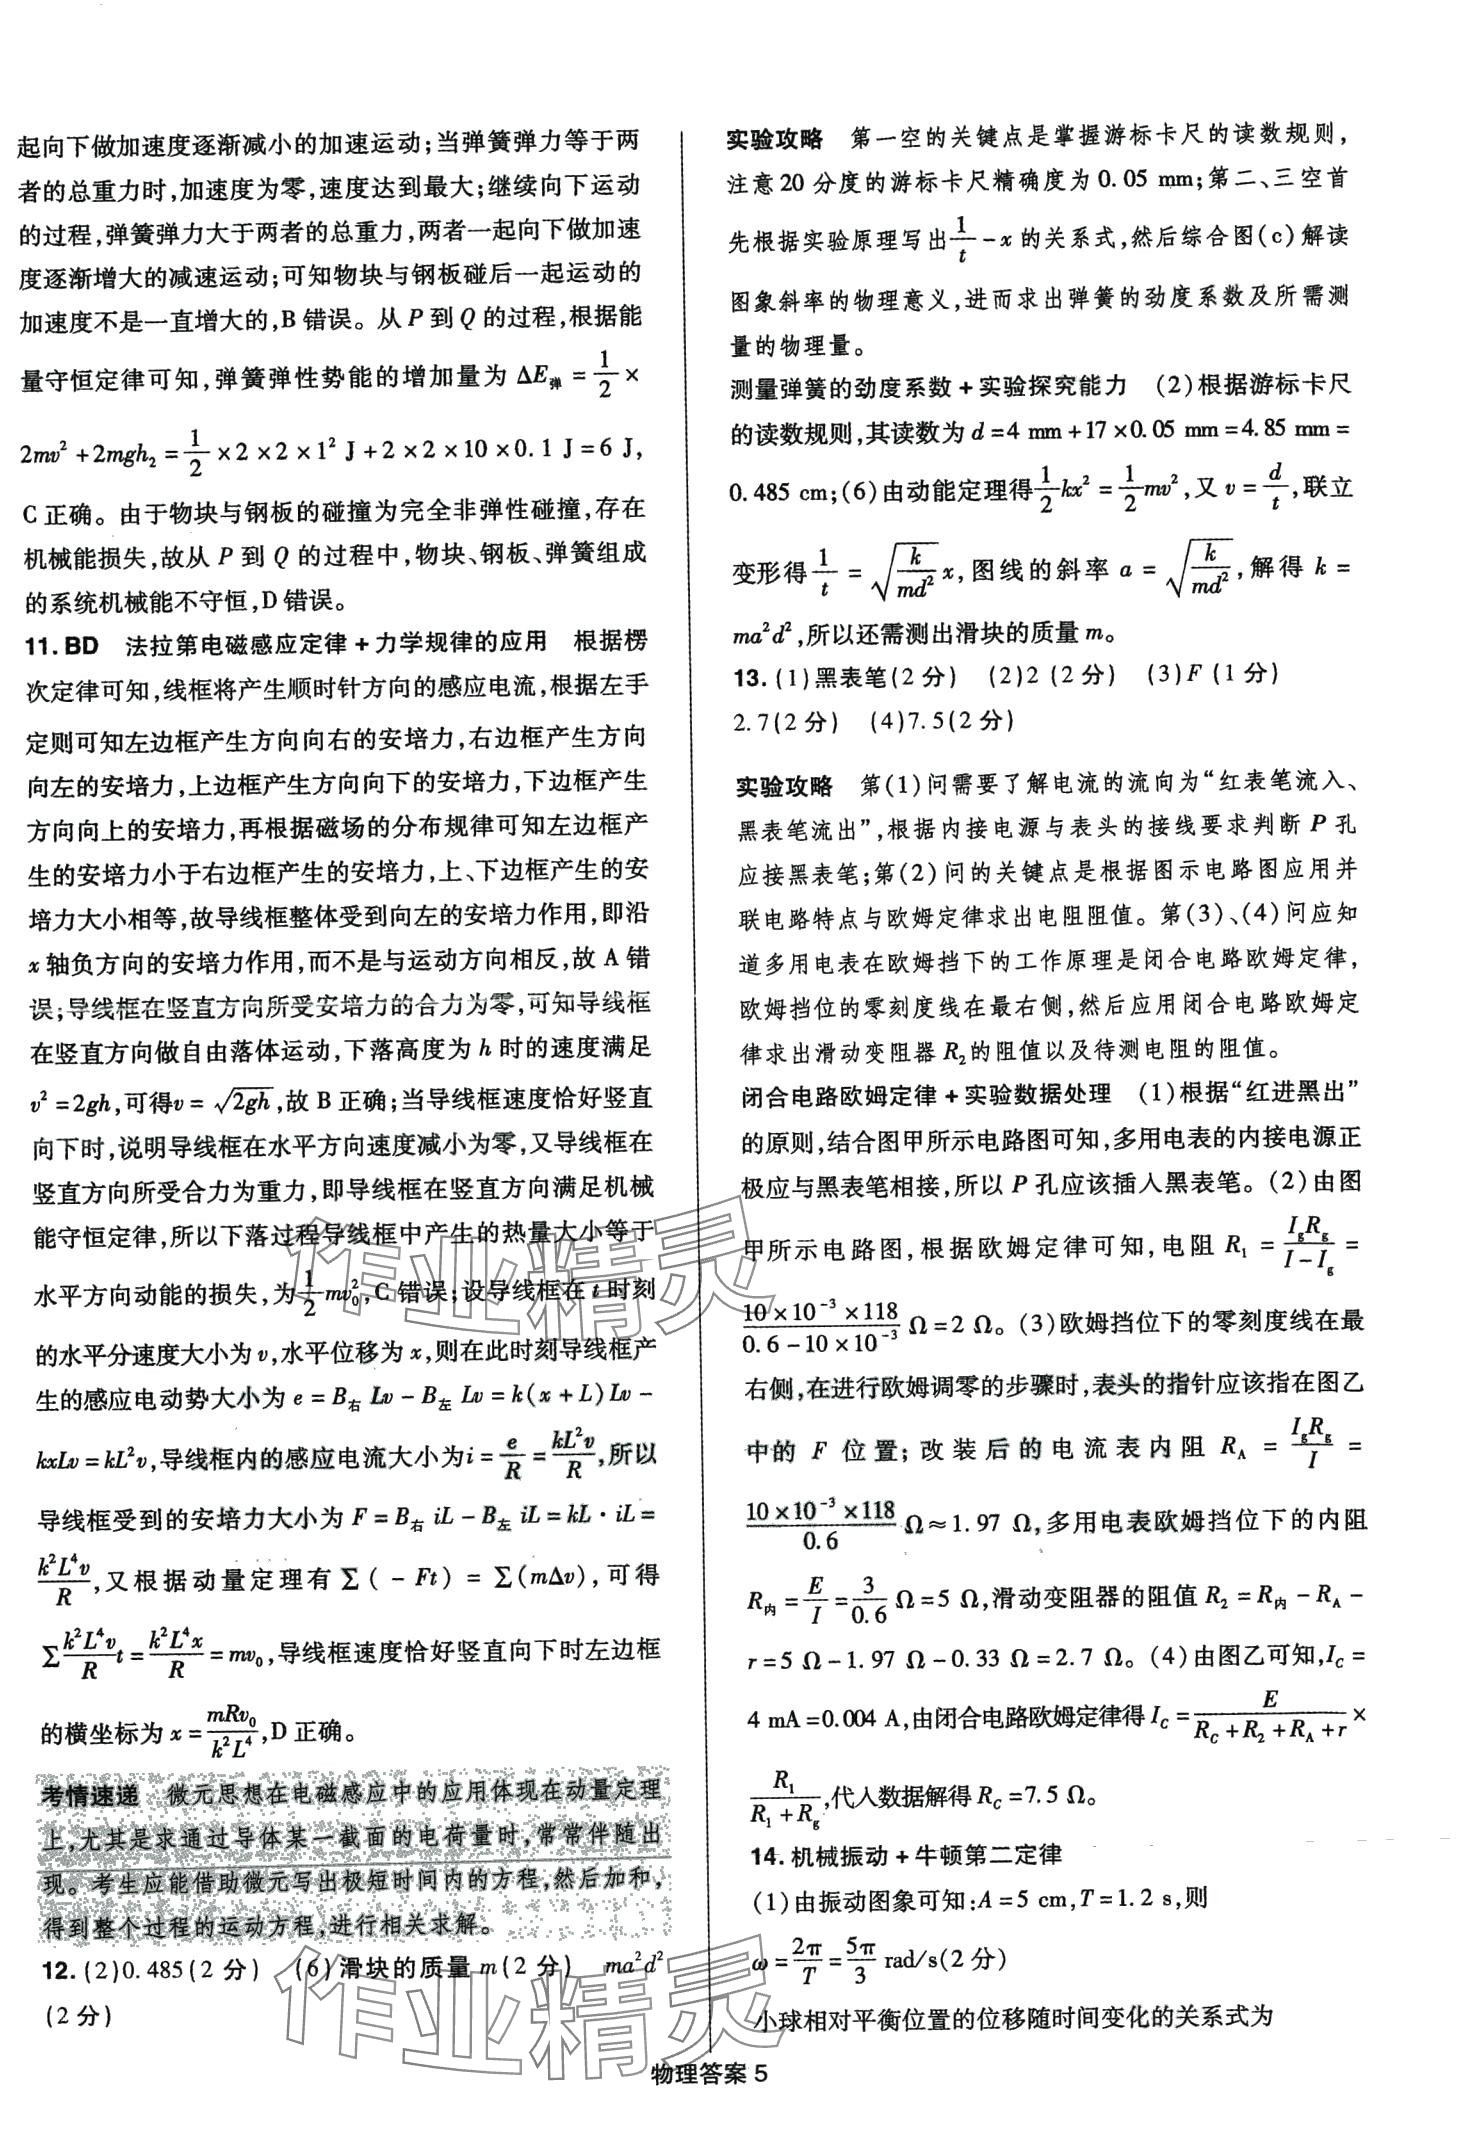 起向下做加速度逐渐减小的加速运动;当弹簧弹力等于两
者的总重力时,加速度为零,速度达到最大;继续向下运动
的过程,弹簧弹力大于两者的总重力,两者一起向下做加速
度逐渐增大的减速运动;可知物块与钢板碰后一起运动的
加速度不是一直增大的,B 错误。从 P 到 Q 的过程,根据能
量守恒定律可知,弹簧弹性势能的增加量为 ΔE弹 = 1/2 ×
2mv² + 2mgh₂ = 1/2 × 2 × 2 × 1² J + 2 × 2 × 10 × 0.1 J = 6 J,
C 正确。由于物块与钢板的碰撞为完全非弹性碰撞,存在
机械能损失,故从 P 到 Q 的过程中,物块、钢板、弹簧组成
的系统机械能不守恒,D 错误。
11. BD 法拉第电磁感应定律 + 力学规律的应用 根据楞
次定律可知,线框将产生顺时针方向的感应电流,根据左手
定则可知左边框产生方向向右的安培力,右边框产生方向
向左的安培力,上边框产生方向向下的安培力,下边框产生
方向向上的安培力,再根据磁场的分布规律可知左边框产
生的安培力小于右边框产生的安培力,上、下边框产生的安
培力大小相等,故导线框整体受到向左的安培力作用,即沿
x 轴负方向的安培力作用,而不是与运动方向相反,故 A 错
误;导线框在竖直方向所受安培力的合力为零,可知导线框
在竖直方向做自由落体运动,下落高度为 h 时的速度满足
v² = 2gh,可得v = √(2gh),故 B 正确;当导线框速度恰好竖直
向下时,说明导线框在水平方向速度减小为零,又导线框在
竖直方向所受合力为重力,即导线框在竖直方向满足机械
能守恒定律,所以下落过程导线框中产生的热量大小等于
水平方向动能的损失,为 1/2 mv₀²,C 错误;设导线框在 t 时刻
的水平分速度大小为 v,水平位移为 x,则在此时刻导线框产
生的感应电动势大小为 e = B右 Lv − B左 Lv = k(x + L)Lv −
kxLv = kL²v,导线框内的感应电流大小为 i = e/R = kL²v/R,所以
导线框受到的安培力大小为 F = B右 iL − B左 iL = kL · iL =
k²L⁴v/R,又根据动量定理有 ∑(−Ft) = ∑(mΔv),可得
∑ k²L⁴v/R t = k²L⁴x/R = mv₀,导线框速度恰好竖直向下时左边框
的横坐标为 x = mRv₀/k²L⁴,D 正确。
考情速递 微元思想在电磁感应中的应用体现在动量定理
上,尤其是求通过导体某一截面的电荷量时,常常伴随出
现。考生应能借助微元写出极短时间内的方程,然后加和,
得到整个过程的运动方程,进行相关求解。
12. (2)0.485(2 分) (6)滑块的质量 m(2 分) ma²d²
(2 分)
实验攻略 第一空的关键点是掌握游标卡尺的读数规则,
注意 20 分度的游标卡尺精确度为 0.05 mm;第二、三空首
先根据实验原理写出 1/t − x 的关系式,然后综合图(c)解读
图象斜率的物理意义,进而求出弹簧的劲度系数及所需测
量的物理量。
测量弹簧的劲度系数 + 实验探究能力 (2)根据游标卡尺
的读数规则,其读数为 d = 4 mm + 17 × 0.05 mm = 4.85 mm =
0.485 cm;(6)由动能定理得 1/2 kx² = 1/2 mv²,又 v = d/t,联立
变形得 1/t = √(k/md²) x,图线的斜率 a = √(k/md²),解得 k =
ma²d²,所以还需测出滑块的质量 m。
13. (1)黑表笔(2 分) (2)2 (2 分) (3)F (1 分)
2.7(2 分) (4)7.5(2 分)
实验攻略 第(1)问需要了解电流的流向为“红表笔流入、
黑表笔流出”,根据内接电源与表头的接线要求判断 P 孔
应接黑表笔;第(2)问的关键点是根据图示电路图应用并
联电路特点与欧姆定律求出电阻阻值。第(3)、(4)问应知
道多用电表在欧姆挡下的工作原理是闭合电路欧姆定律,
欧姆挡位的零刻度线在最右侧,然后应用闭合电路欧姆定
律求出滑动变阻器 R₂的阻值以及待测电阻的阻值。
闭合电路欧姆定律 + 实验数据处理 (1)根据“红进黑出”
的原则,结合图甲所示电路图可知,多用电表的内接电源正
极应与黑表笔相接,所以 P 孔应该插入黑表笔。(2)由图
甲所示电路图,根据欧姆定律可知,电阻 R₁ = IgRg/(I − Ig) =
(10 × 10⁻³ × 118)/(0.6 − 10 × 10⁻³) Ω = 2 Ω。(3)欧姆挡位下的零刻度线在最
右侧,在进行欧姆调零的步骤时,表头的指针应该指在图乙
中的 F 位置;改装后的电流表内阻 R_A = IgRg/I =
(10 × 10⁻³ × 118)/0.6 Ω ≈ 1.97 Ω,多用电表欧姆挡位下的内阻
R内 = E/I = 3/0.6 Ω = 5 Ω,滑动变阻器的阻值 R₂ = R内 − R_A −
r = 5 Ω − 1.97 Ω − 0.33 Ω = 2.7 Ω。(4)由图乙可知,I_C =
4 mA = 0.004 A,由闭合电路欧姆定律得 I_C = E/(R_C + R₂ + R_A + r) ×
R₁/(R₁ + Rg),代入数据解得 R_C = 7.5 Ω。
14. 机械振动 + 牛顿第二定律
(1)由振动图象可知:A = 5 cm,T = 1.2 s,则
ω = 2π/T = 5π/3 rad/s(2 分)
小球相对平衡位置的位移随时间变化的关系式为
物理答案 5
作业精灵
作业精灵